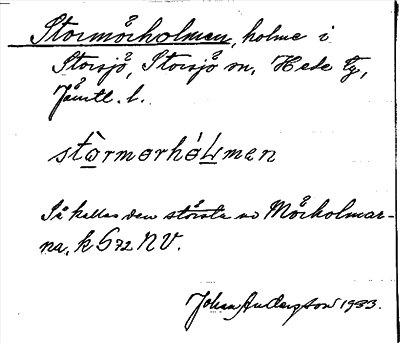 Stormörholmen, holme i
Storsjö, Storsjö sn, Hede tg,
Jämtl. l.
stòrmerhóLmen
Så kallas den största av Mörholmar-
na, k 672 NV.
Johan Anderson 1933.